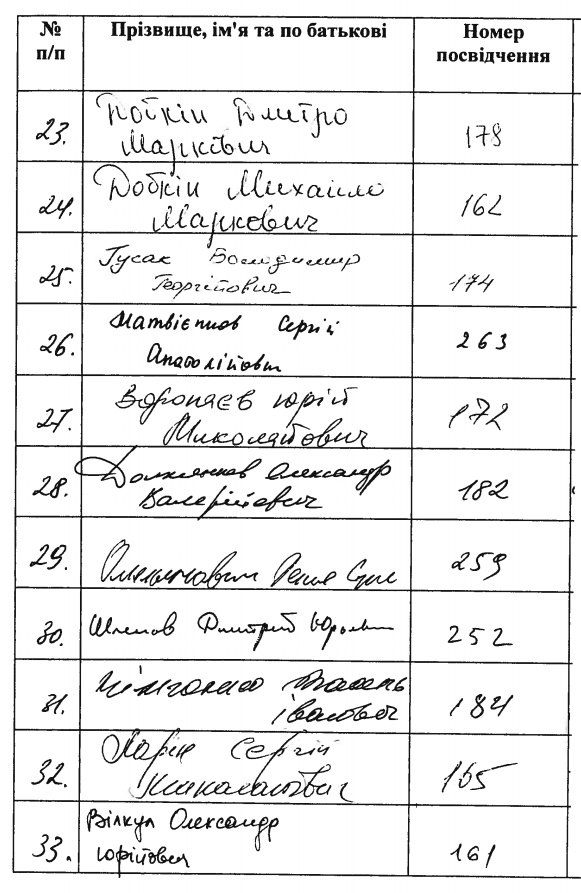 № п/п Прізвище, ім'я та по батькові Номер посвідчення
23. Добкін Дмитро Маркович 178
24. Добкін Михайло Маркович 162
25. Гусак Володимир Георгійович 174
26. Матвієнков Сергій Анатолійович 263
27. Воропаєв Юрій Миколайович 172
28. Долженков Олександр Валерійович 182
29. 259
30. Шпенов Дмитрий Юрьевич 252
31. Іванович 184
32. Ларін Сергій Миколайович 165
33. Вілкул Олександр Юрійович 161